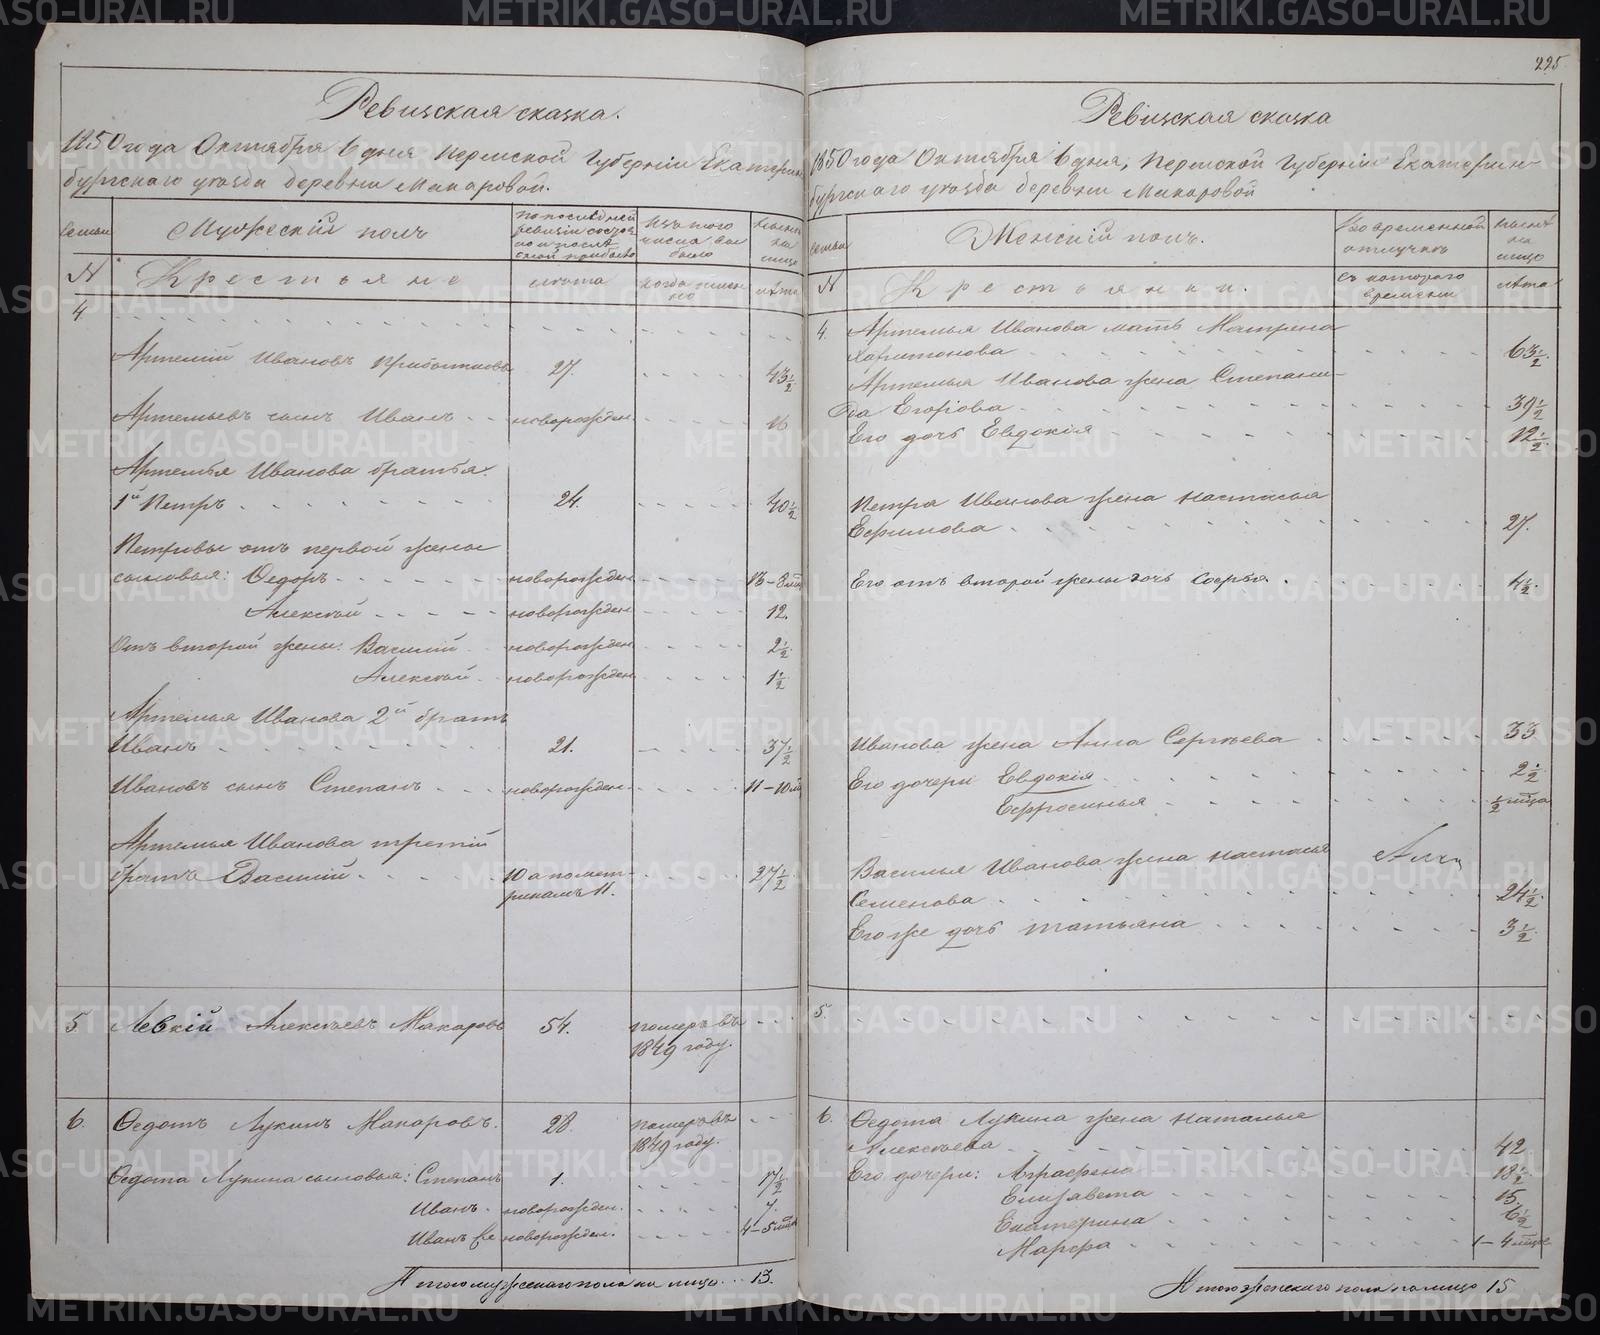 225
Ревизская сказка.
1850 года Октября 6 дня Пермской Губернии Екатерин-
бургскаго уезда деревни Макаровой.
Семьи
Мужеский полъ
По последней
ревизии состоя
ло и после
оной прибыло
Изъ того
числа вы
было
Ныне
на
лицо
№
Крестьяне
лета
когда имен
но
лета
4
Артемий Ивановъ
27.
43 1/2
Артемьевъ сынъ Иванъ
новорожден.
16
Артемья Ивановa братья
1й Петръ
24.
40 1/2
Петровы отъ первой жены
сыновья: Ѳедоръ
новорожден.
13-8 м
Алексей
новорожден.
12.
Отъ второй жены: Василий
новорожден.
2 1/2
Алексей
новорожден.
1 1/2
Артемья Иванова 2й братъ
Иванъ
21.
37 1/2
Ивановъ сынъ Степанъ
новорожден.
11-10 м
Артемья Иванова третий
братъ Василий
10 а по мет-
рикамъ 11.
27 1/2
5
Левкий Алексеевъ Макаровъ
54.
померъ въ
1849 году.
6.
Ѳедотъ Лукинъ Макаровъ.
28
померъ въ
1849 году.
Ѳедота Лукина сыновья: Степанъ
1.
17 1/2
Иванъ
новорожден.
7.
Иванъ же
новорожден.
4-5
Итого мужескаго пола на лицо 13.
Ревизская сказка
1850 года Октября 6 дня, Пермской Губернии Екатерин-
бургскаго уезда деревни Макаровой
Семьи
Женский полъ.
Во временной
отлучке
Ныне
на
лицо
№
Крестьянки.
съ котораго
времени
лета
4.
Артемья Иванова мать Матрина
Харитонова
63 1/2
Артемья Иванова жена Степани-
да Егорова
39 1/2
Его дочь Евдокия
12 1/2
Петра Иванова жена Настасья
Ефимова
27.
Его отъ второй жены дочь Софья.
4 1/2
Иванова жена Анна Сергеева
33
Его дочери Евдокия
2 1/2
Ефросинья
1/2 м-ца
Василья Иванова жена Настасья
Семенова
24 1/2
Его же дочь Татьяна
3 1/2
5.
6.
Ѳедота Лукина жена Наталья
Алексеева
42
Его дочери: Аграфена
18 1/2
Елизавета
15.
Екатерина
6 1/2
Марфа
1-4
Итого женскаго пола на лицо 15
METRIKI.GASO-URAL.RU